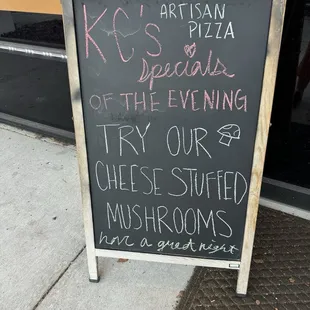 KC's ARTISAN PIZZA
Specials
OF THE EVENING
TRY OUR
CHEESE STUFFED
MUSHROOMS
have a great night